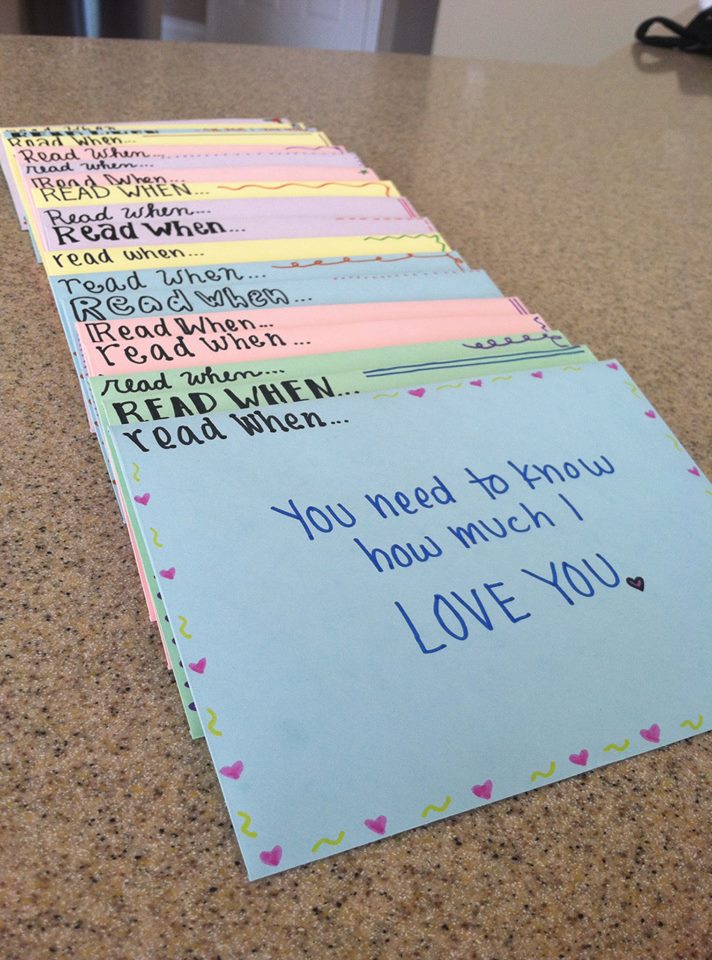 Read When...
Read When...
read when...
Read When...
READ WHEN...
Read when...
Read When...
read when...
read when...
Read when...
Read When...
read when...
read when...
READ WHEN...
read when...
You need to know
how much I
LOVE YOU.